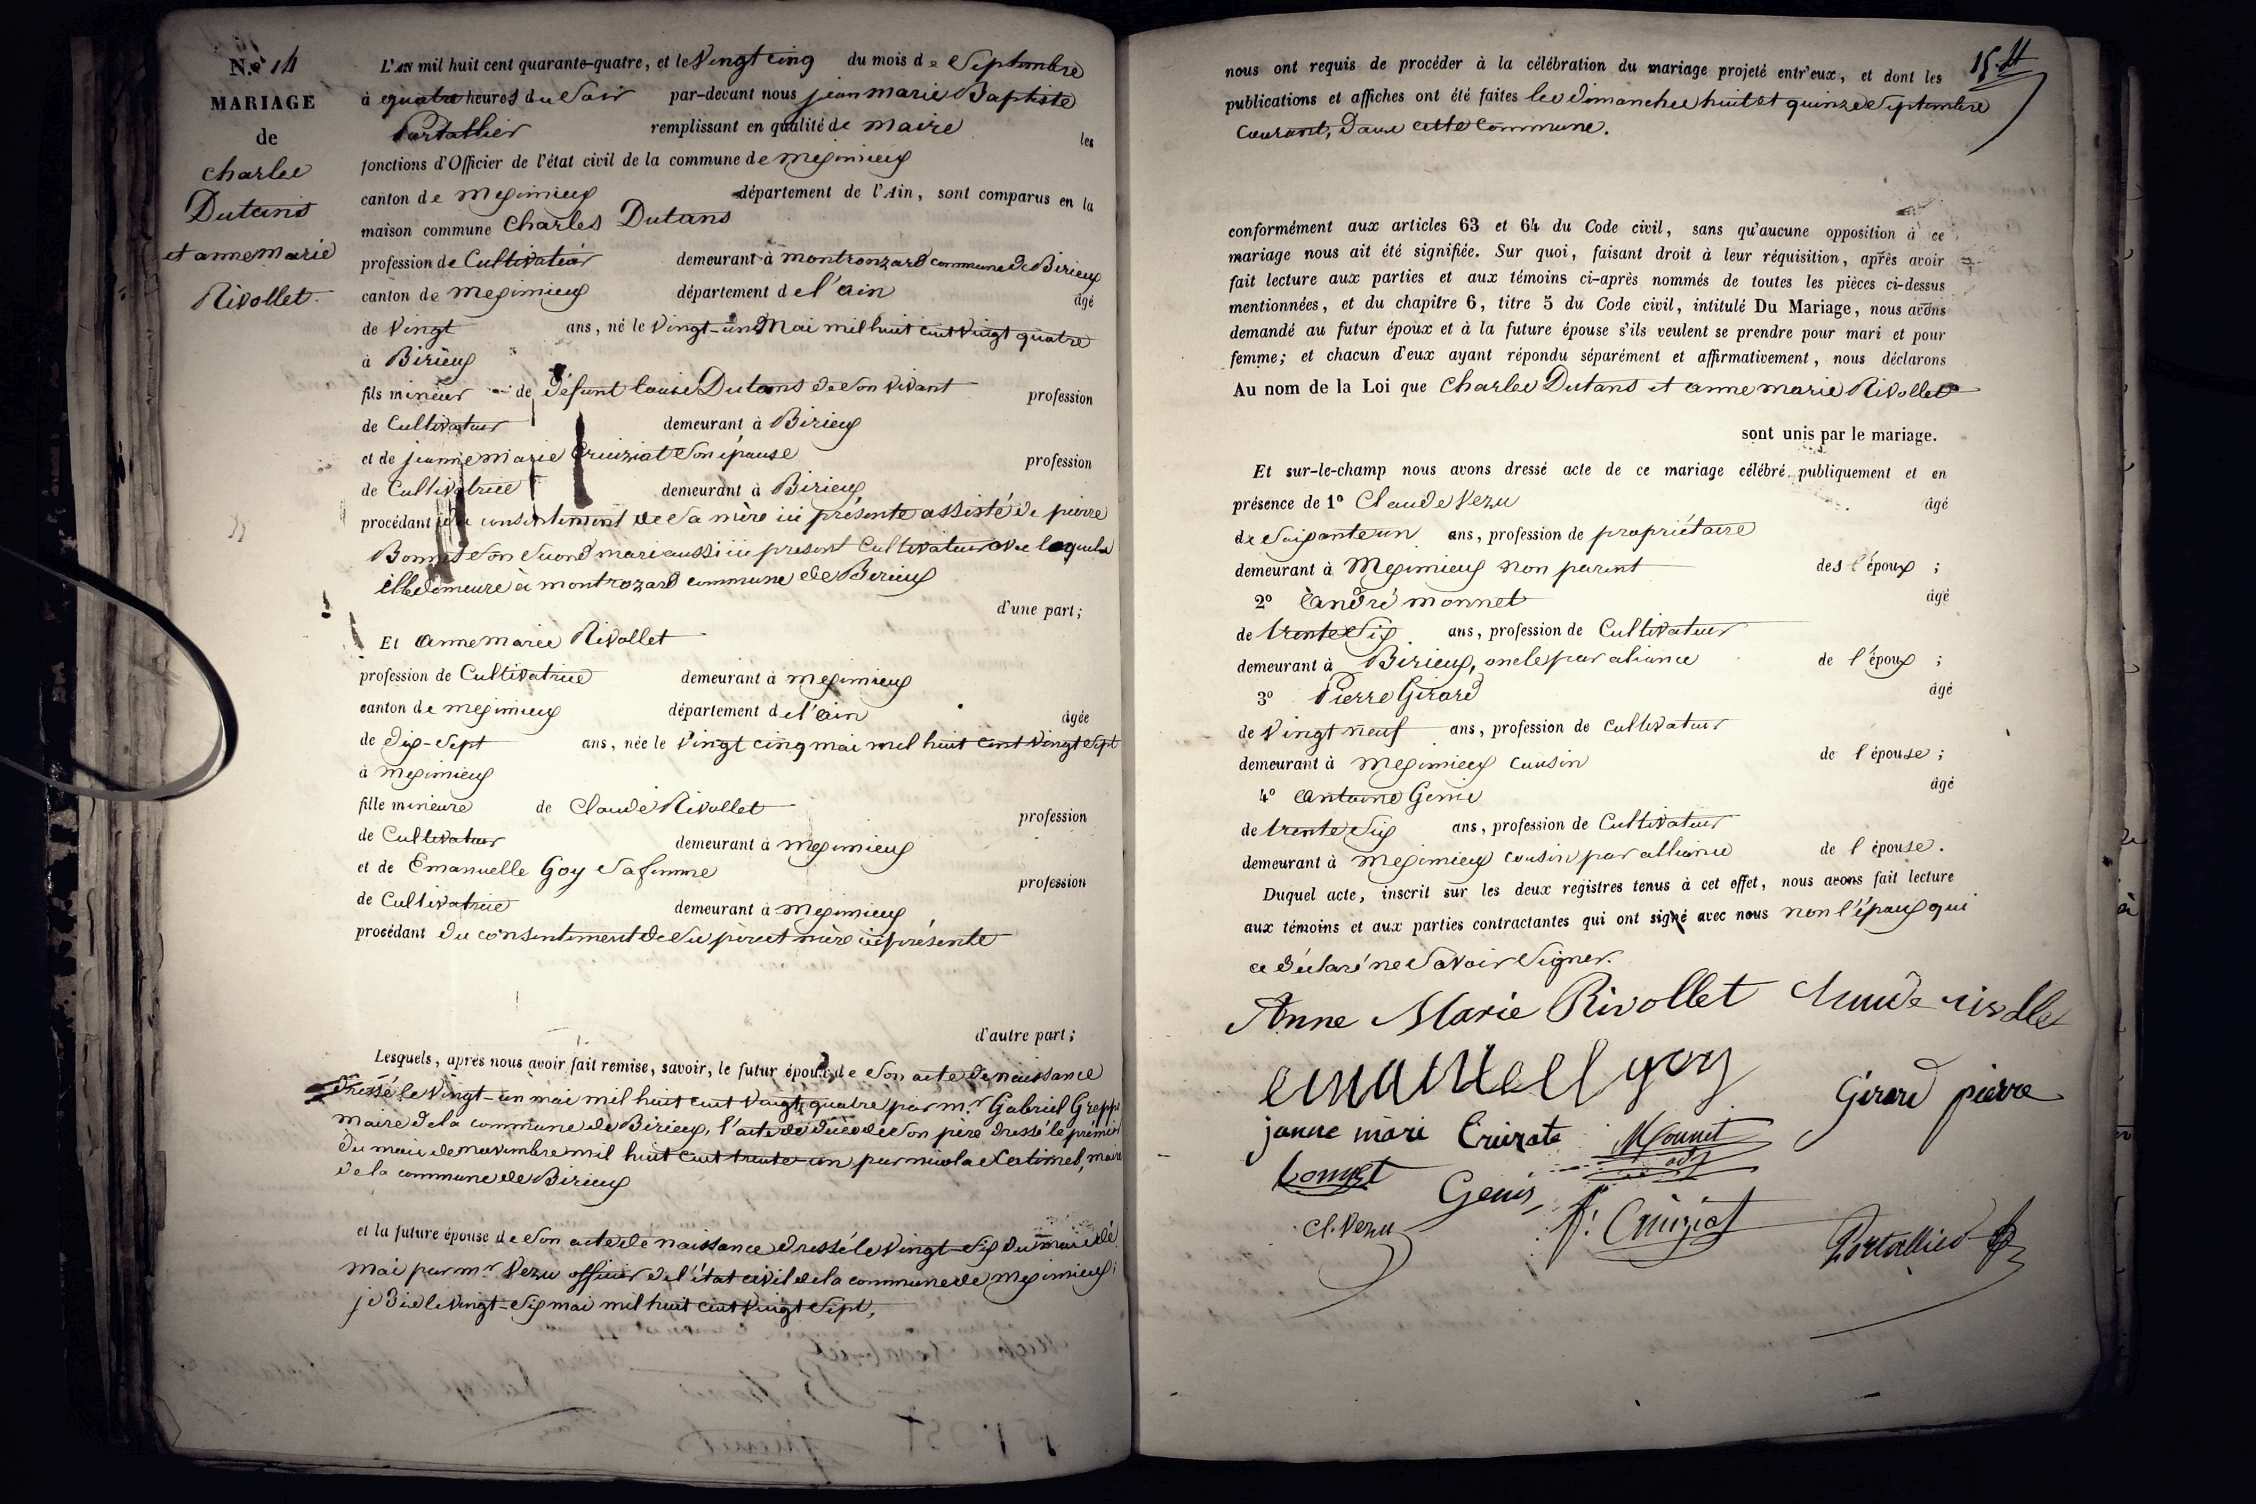 N.º 14
MARIAGE
de
Charles
Dutans
et anne marie
Rivollet.
L'AN mil huit cent quarante-quatre, et le Vingt cinq du mois de Septembre
à quatre heures du Soir par-devant nous jean marie Baptiste
Portallier remplissant en qualité de maire les
fonctions d'Officier de l'état civil de la commune de meximieux
canton de meximieux département de l'Ain, sont comparus en la
maison commune Charles Dutans
profession de Cultivateur demeurant à montronzard commune de Birieux
canton de meximieux département de l'ain âgé
de Vingt ans, né le Vingt-un Mai mil huit cent Vingt quatre
à Birieux
fils mineur de défunt Louis Dutans de Son Vivant profession
de Cultivateur demeurant à Birieux
et de jeanne marie Cruiziat Son épouse profession
de Cultivatrice demeurant à Birieux
procédant du consentement de Sa mère ici présente assisté de pierre
Son Second mari aussi ici present Cultivateur avec laquel
Elle demeure à montrozard commune de Birieux
d'une part;
Et anne marie Rivollet
profession de Cultivatrice demeurant à meximieux
canton de meximieux département de l'ain âgée
de dix-Sept ans, née le Vingt cinq mai mil huit cent Vingt Sept
à meximieux
fille mineure de Claude Rivollet profession
de Cultivateur demeurant à meximieux
et de Emanuelle Goy Sa femme profession
de Cultivatrice demeurant à meximieux
procédant du consentement de Su père et mère ici présente
d'autre part;
Lesquels, après nous avoir fait remise, savoir, le futur époux, de Son acte de naissance
dressé le Vingt-un mai mil huit cent Vingt quatre par m.r Gabriel Greppo
maire de la commune de Birieux, l'acte de décé de Son père dressé le premier
du mois de novembre mil huit cent trente-un par nicolas maire
de la commune de Birieux
et la future épouse de Son acte de naissance dressé le Vingt-Six du mois de
mai par m.r Vezu officier de l'état civil de la commune de meximieux
je dis le Vingt-Six mai mil huit cent Vingt Sept,
15.
nous ont requis de procéder à la célébration du mariage projeté entr'eux, et dont les
publications et affiches ont été faites les dimanches huit et quinze Septembre
Courant, dans cette Commune.
conformément aux articles 63 et 64 du Code civil, sans qu'aucune opposition à ce
mariage nous ait été signifiée. Sur quoi, faisant droit à leur réquisition, après avoir
fait lecture aux parties et aux témoins ci-après nommés de toutes les pièces ci-dessus
mentionnées, et du chapitre 6, titre 5 du Code civil, intitulé Du Mariage, nous avons
demandé au futur époux et à la future épouse s'ils veulent se prendre pour mari et pour
femme; et chacun d'eux ayant répondu séparément et affirmativement, nous déclarons
Au nom de la Loi que Charles Dutans et anne marie Rivollet
sont unis par le mariage.
Et sur-le-champ nous avons dressé acte de ce mariage célébré publiquement et en
présence de 1º Claude Vezu âgé
de Soixante un ans, profession de propriétaire
demeurant à Meximieux non parent des l'époux ;
2º André monnet âgé
de trente Six ans, profession de Cultivateur
demeurant à Birieux, oncle par aliance de l'époux ;
3º Pierre Girard âgé
de Vingt neuf ans, profession de Cultivateur
demeurant à meximieux Cousin de l'épouse ;
4º Antoine Genis âgé
de trente Six ans, profession de Cultivateur
demeurant à meximieux cousin par alliance de l'épouse.
Duquel acte, inscrit sur les deux registres tenus à cet effet, nous avons fait lecture
aux témoins et aux parties contractantes qui ont signé avec nous non l'époux qui
a déclaré ne Savoir Signer.
Anne Marie Rivollet Claude rivollet
emanuell goy Girard pierre
janne mari Cruizate Monnet
Genis
Cl. Vezu Cruiziat Portallier